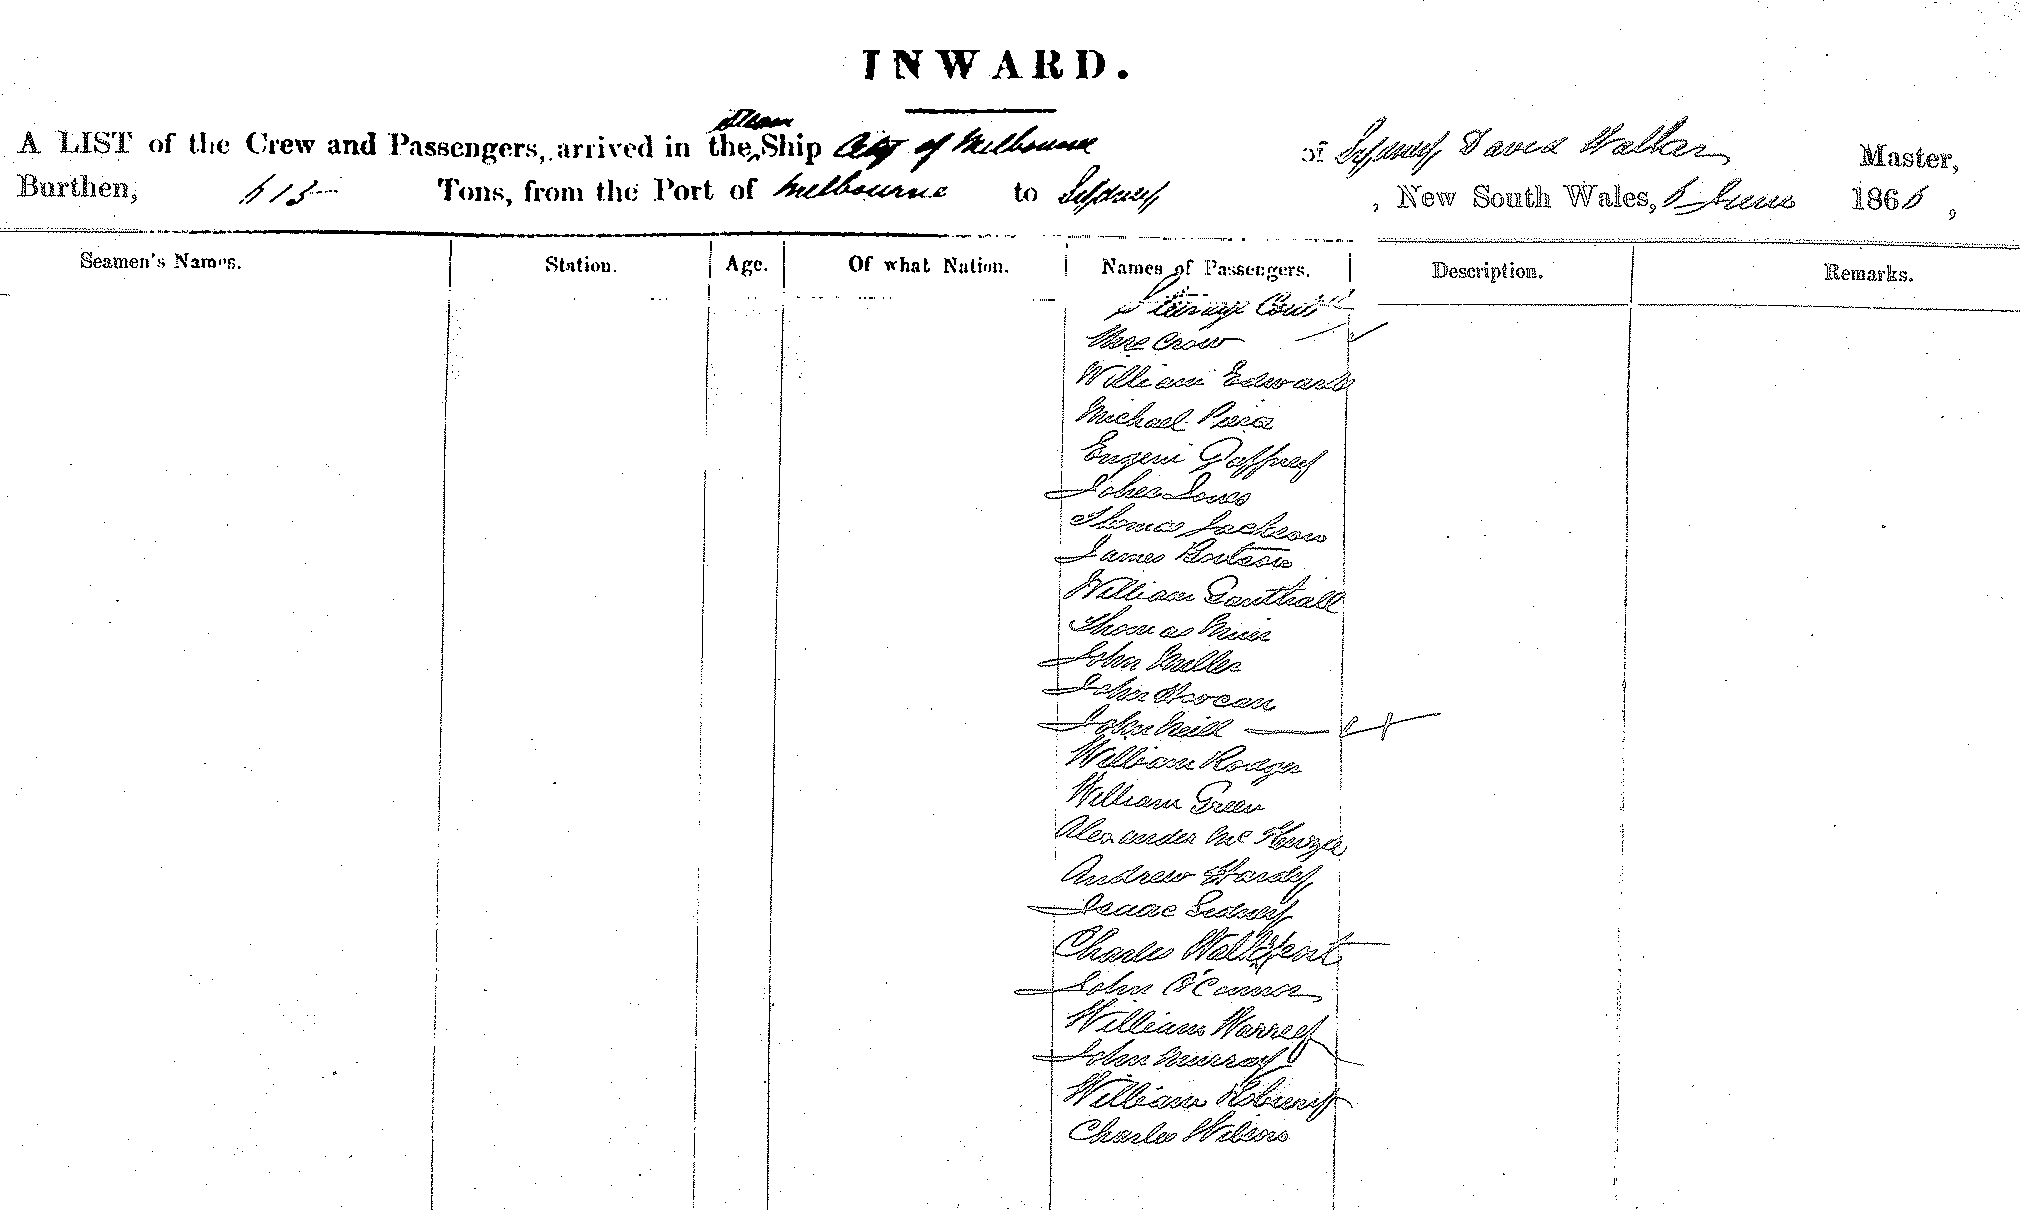 INWARD.
A LIST of the Crew and Passengers, arrived in the Steam Ship City of Melbourne of Sydney David Walker Master,
Burthen, 615 Tons, from the Port of Melbourne to Sydney, New South Wales, 5 June 1865,
Seamen's Names. Station. Age. Of what Nation. Names of Passengers. Description. Remarks.
Steerage Contd
Mrs Crow
William Edwards
Michael
Eugene Gaffney
John Jones
Thomas Jackson
James
William
Thomas Muir
John Miller
John
John Neill
William Rodger
William Green
Alexander McKenzie
Andrew Hardy
Isaac Sidney
Charles
John O'Connor
William
John Murray
William
Charles Wilson